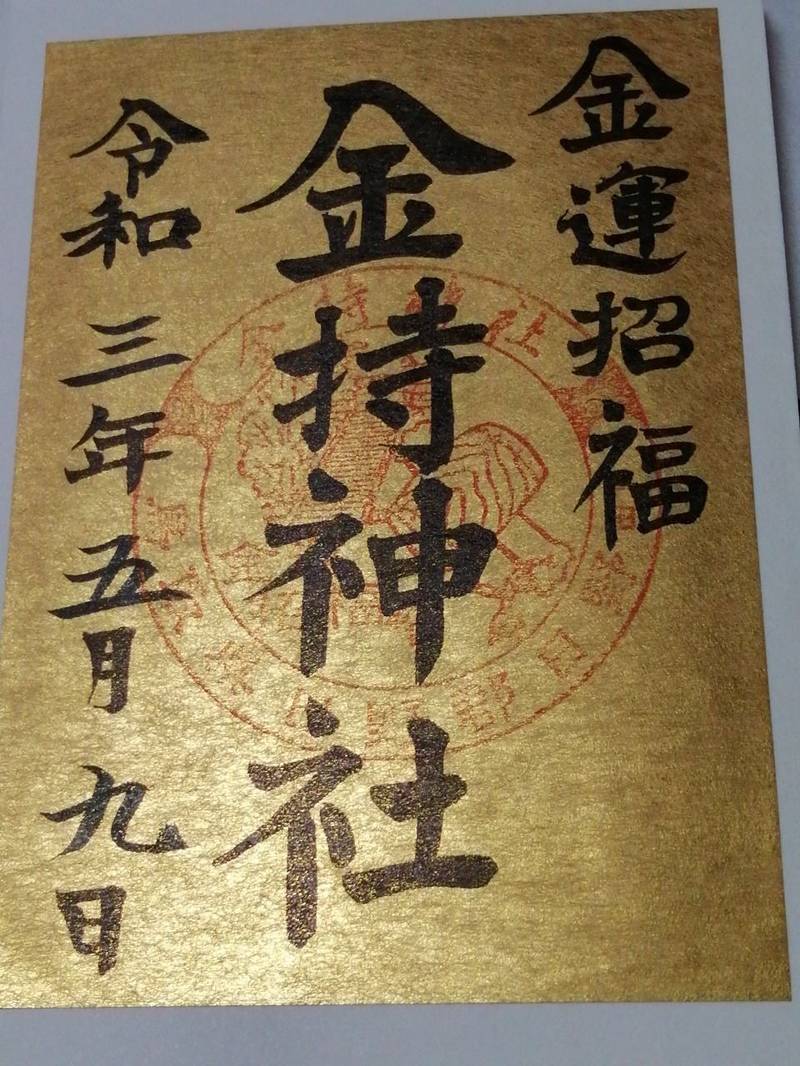 金運招福
金持神社
令和三年五月九日